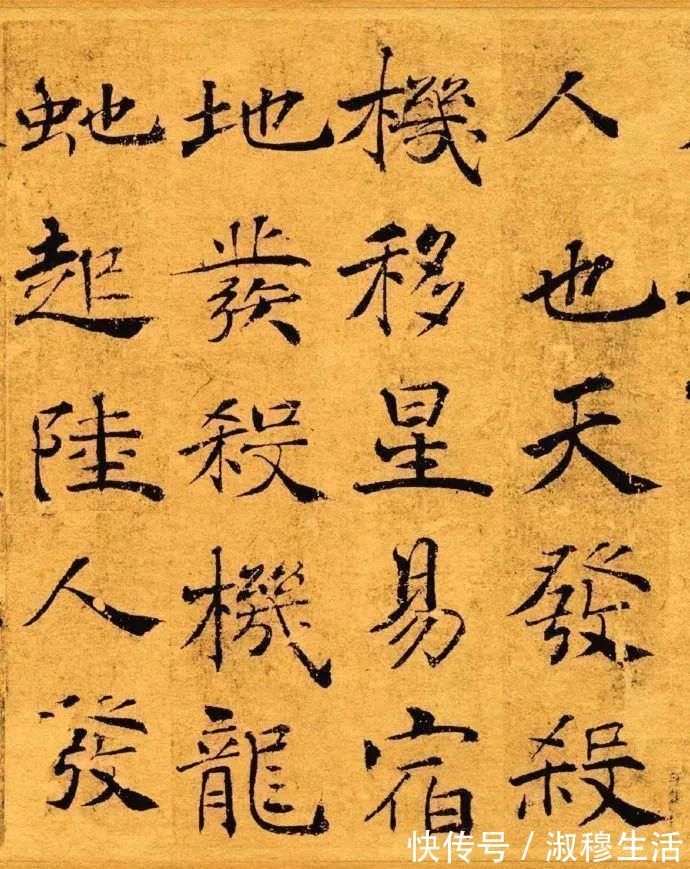 人也天發殺
機移星易宿
地發殺機龍
虵起陸人發
快传号 / 淑穆生活